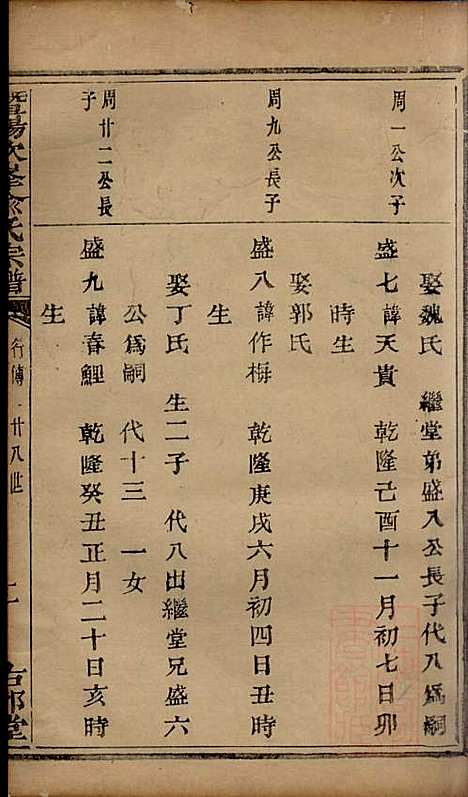 娶魏氏　繼堂弟盛八公長子代八爲嗣
周一公次子
盛七諱天貴　乾隆己酉十一月初七日卯
時生
娶郭氏
周九公長子
盛八諱作梅　乾隆庚戌六月初四日丑時
生
娶丁氏　生二子　代八出繼堂兄盛六
公爲嗣　代十三　一女
周廿二公長
子
盛九諱春鯉　乾隆癸丑正月二十日亥時
生
暨陽次峯俞氏宗譜
行傳　廿八世